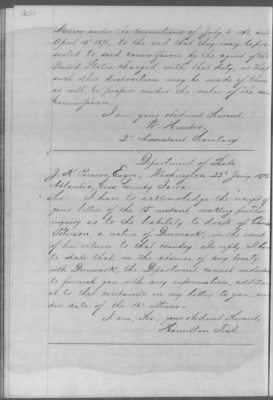 Mexico under the conventions of July 4. 1868 and
April 19" 1871, to the end that they may be pre-
sented to said commission by the agent of the
United States charged with that duty, or that
such other disposition may be made of them
as will be proper under the rules of the
Commission.
I am your obedient Servant,
W. Hunter,
2d Assistant Secretary
Department of State
Washington 22d Jany. 1872
J. K. Esqr.,
Atlantic, Cass County, Iowa.
Sir: I have to acknowledge the receipt of
your letter of the 15 instant making further
inquiry as to the liability to draft of
Peterson a native of Denmark, in the event
of his return to that country. In reply I have
to state that in the absence of any treaty
with Denmark, the Department cannot undertake
to furnish you with any information, addition-
al to that contained in my letter to you, un-
der date of the 16" ultimo.
I am, Sir, your obedient Servant,
Hamilton Fish.